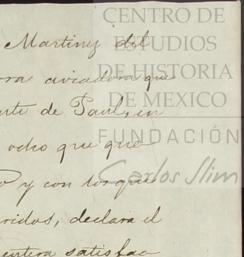 CENTRO DE
ESTUDIOS
DE HISTORIA
DE MEXICO
FUNDACIÓN
Carlos Slim
Martinez del
aviadora que
de Paul, en
ocho que que
y con los que
declara el
entera satisfac